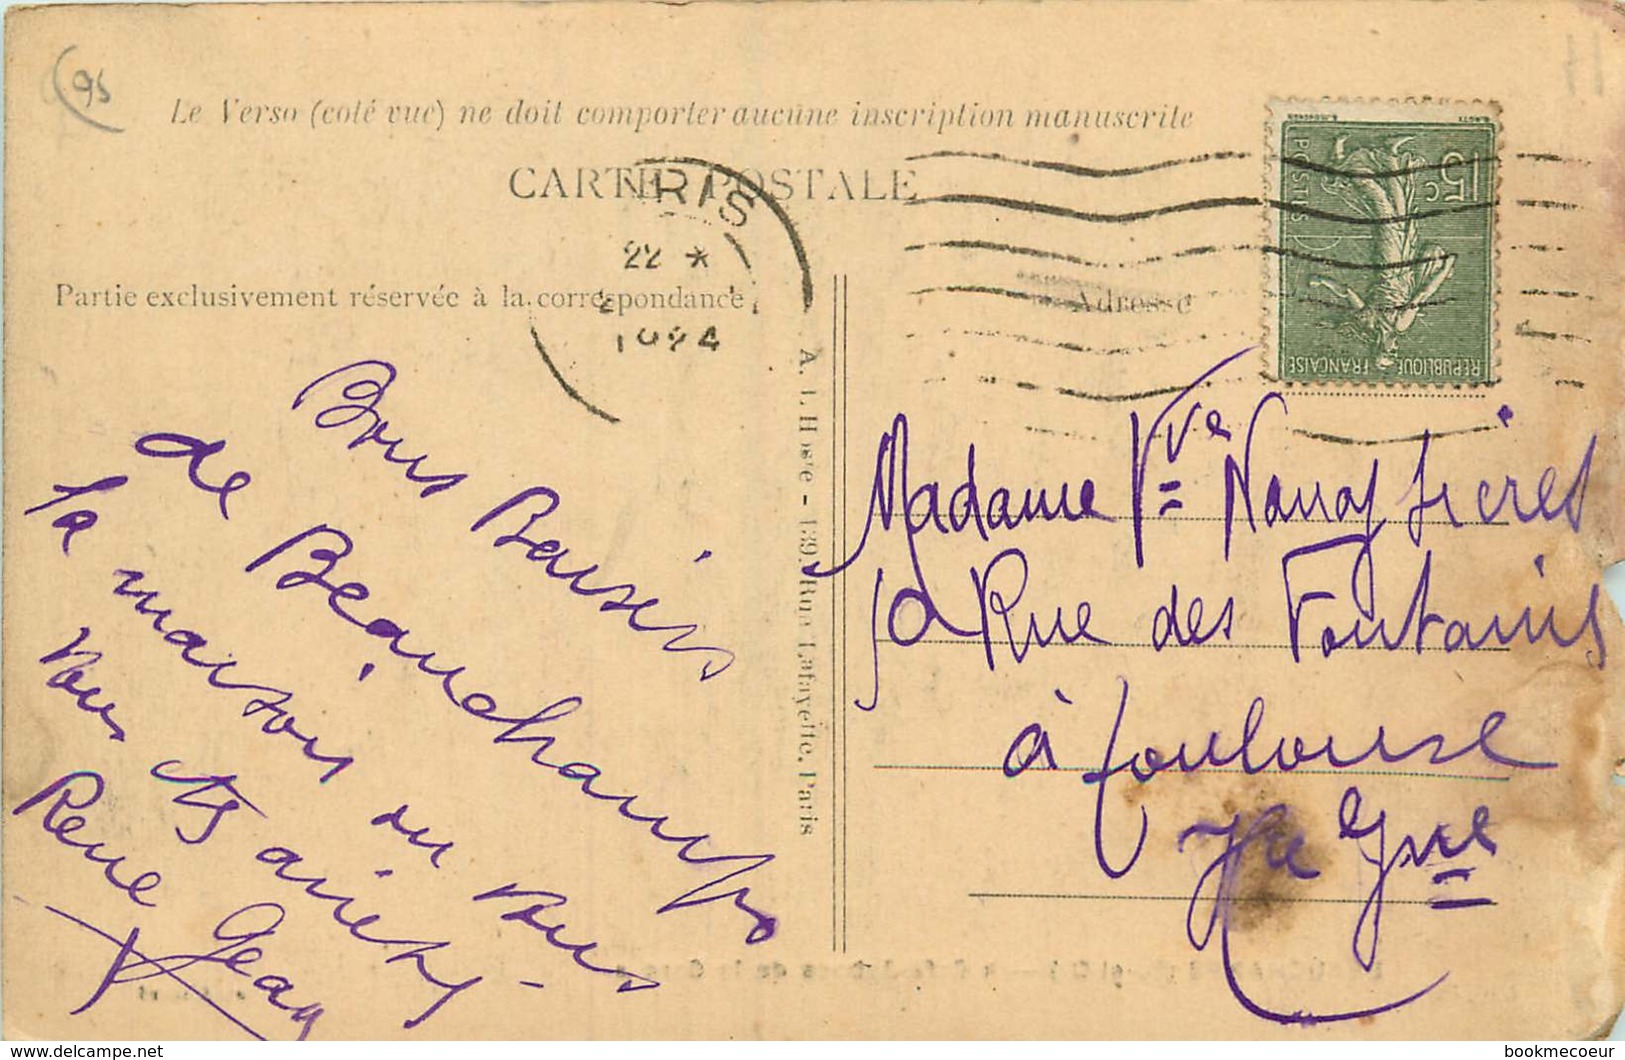 95
Le Verso (coté vue) ne doit comporter aucune inscription manuscrite
CARTE POSTALE
RIS
22 *
1924
15c
POSTES
REPUBLIQUE FRANÇAISE
Partie exclusivement réservée à la correspondance
Adresse
A. L'Hoste - 139, Rue Lafayette, Paris
Bons Baisers
de Beauchamps
la maison ou vous
vous
Rene Jean
Madame Vve
10 Rue des Fontaines
à Toulouse
Hte Gnne
bookmecoeur